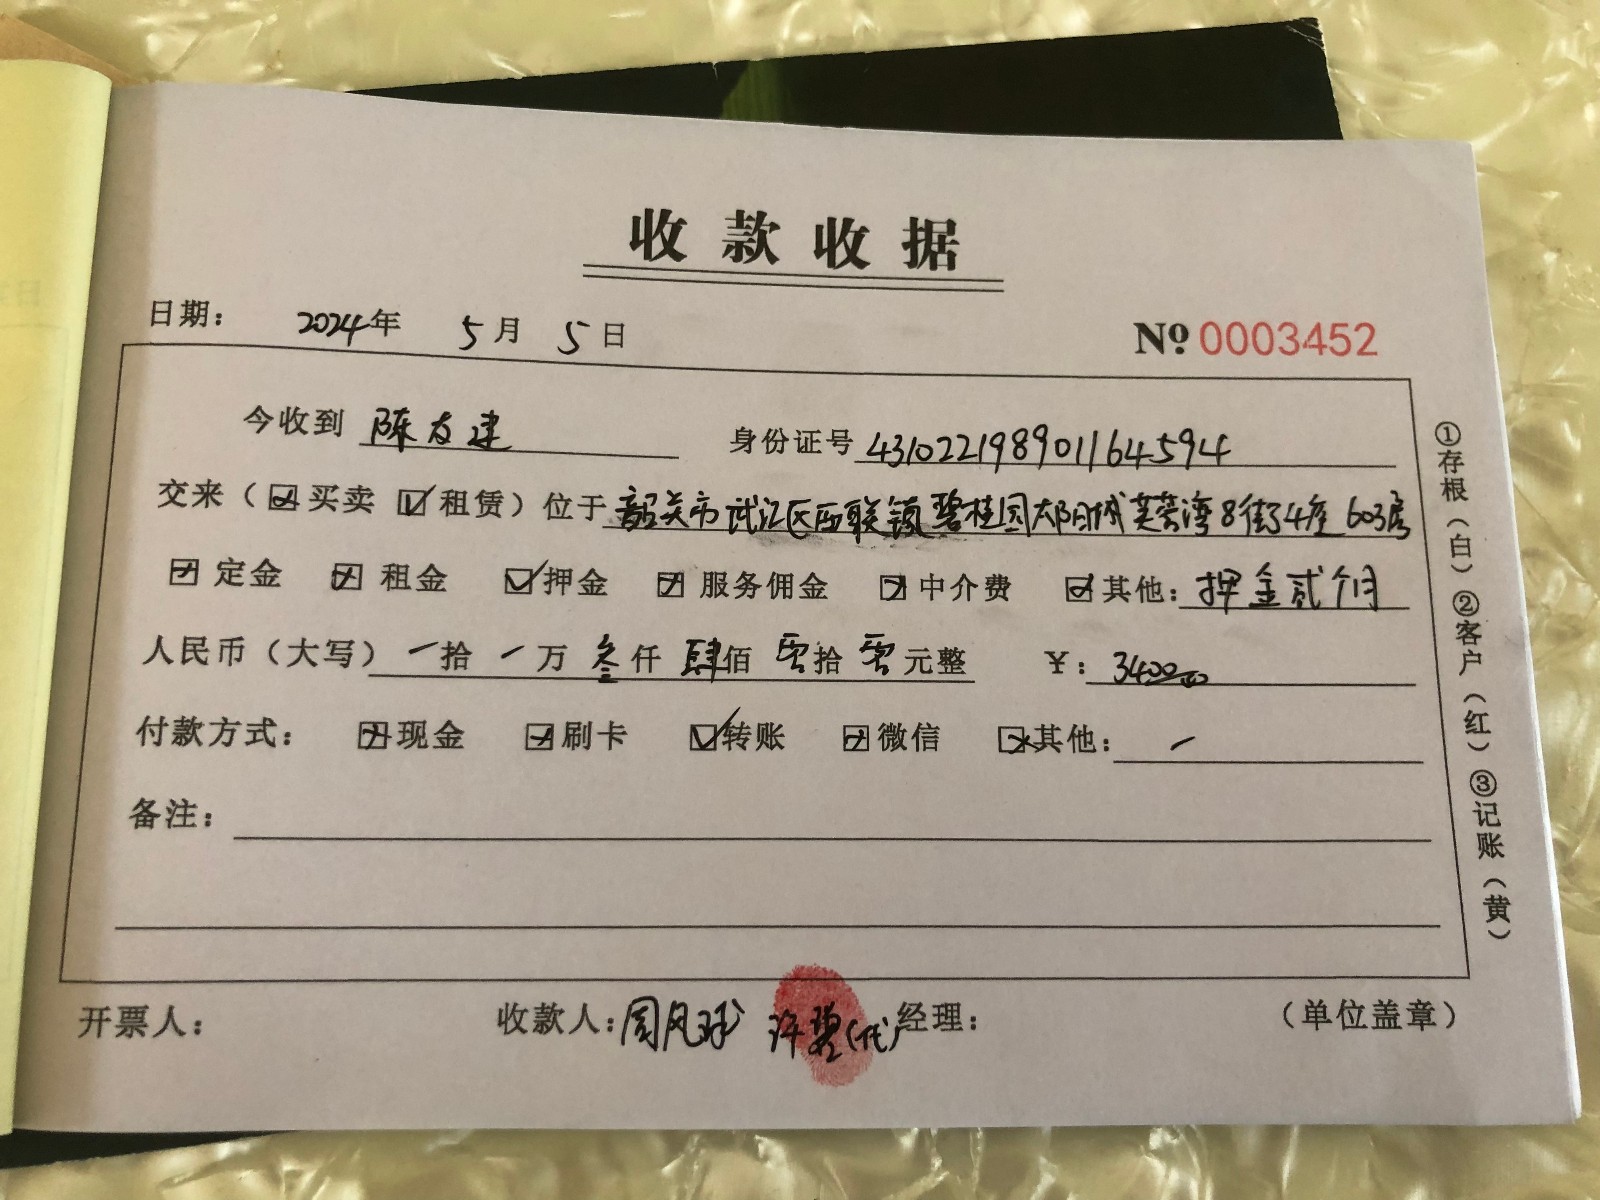 收款收据
日期： 2024年 5月 5日 № 0003452
今收到 陈友建 身份证号 431022198901164594
交来（☒买卖 ☑租赁）位于 韶关市武江区西联镇碧桂园太阳城芙蓉湾8街4座603房
☒定金 ☒租金 ☑押金 ☒服务佣金 ☒中介费 ☒其他：押金贰个月
人民币（大写） 一拾 一万 叁仟 肆佰 零拾 零元整 ￥：3400.00
付款方式： ☒现金 ☒刷卡 ☑转账 ☒微信 ☒其他： 一
备注：
开票人： 收款人：周凤球 许碧（代） 经理： （单位盖章）
①存根（白）②客户（红）③记账（黄）